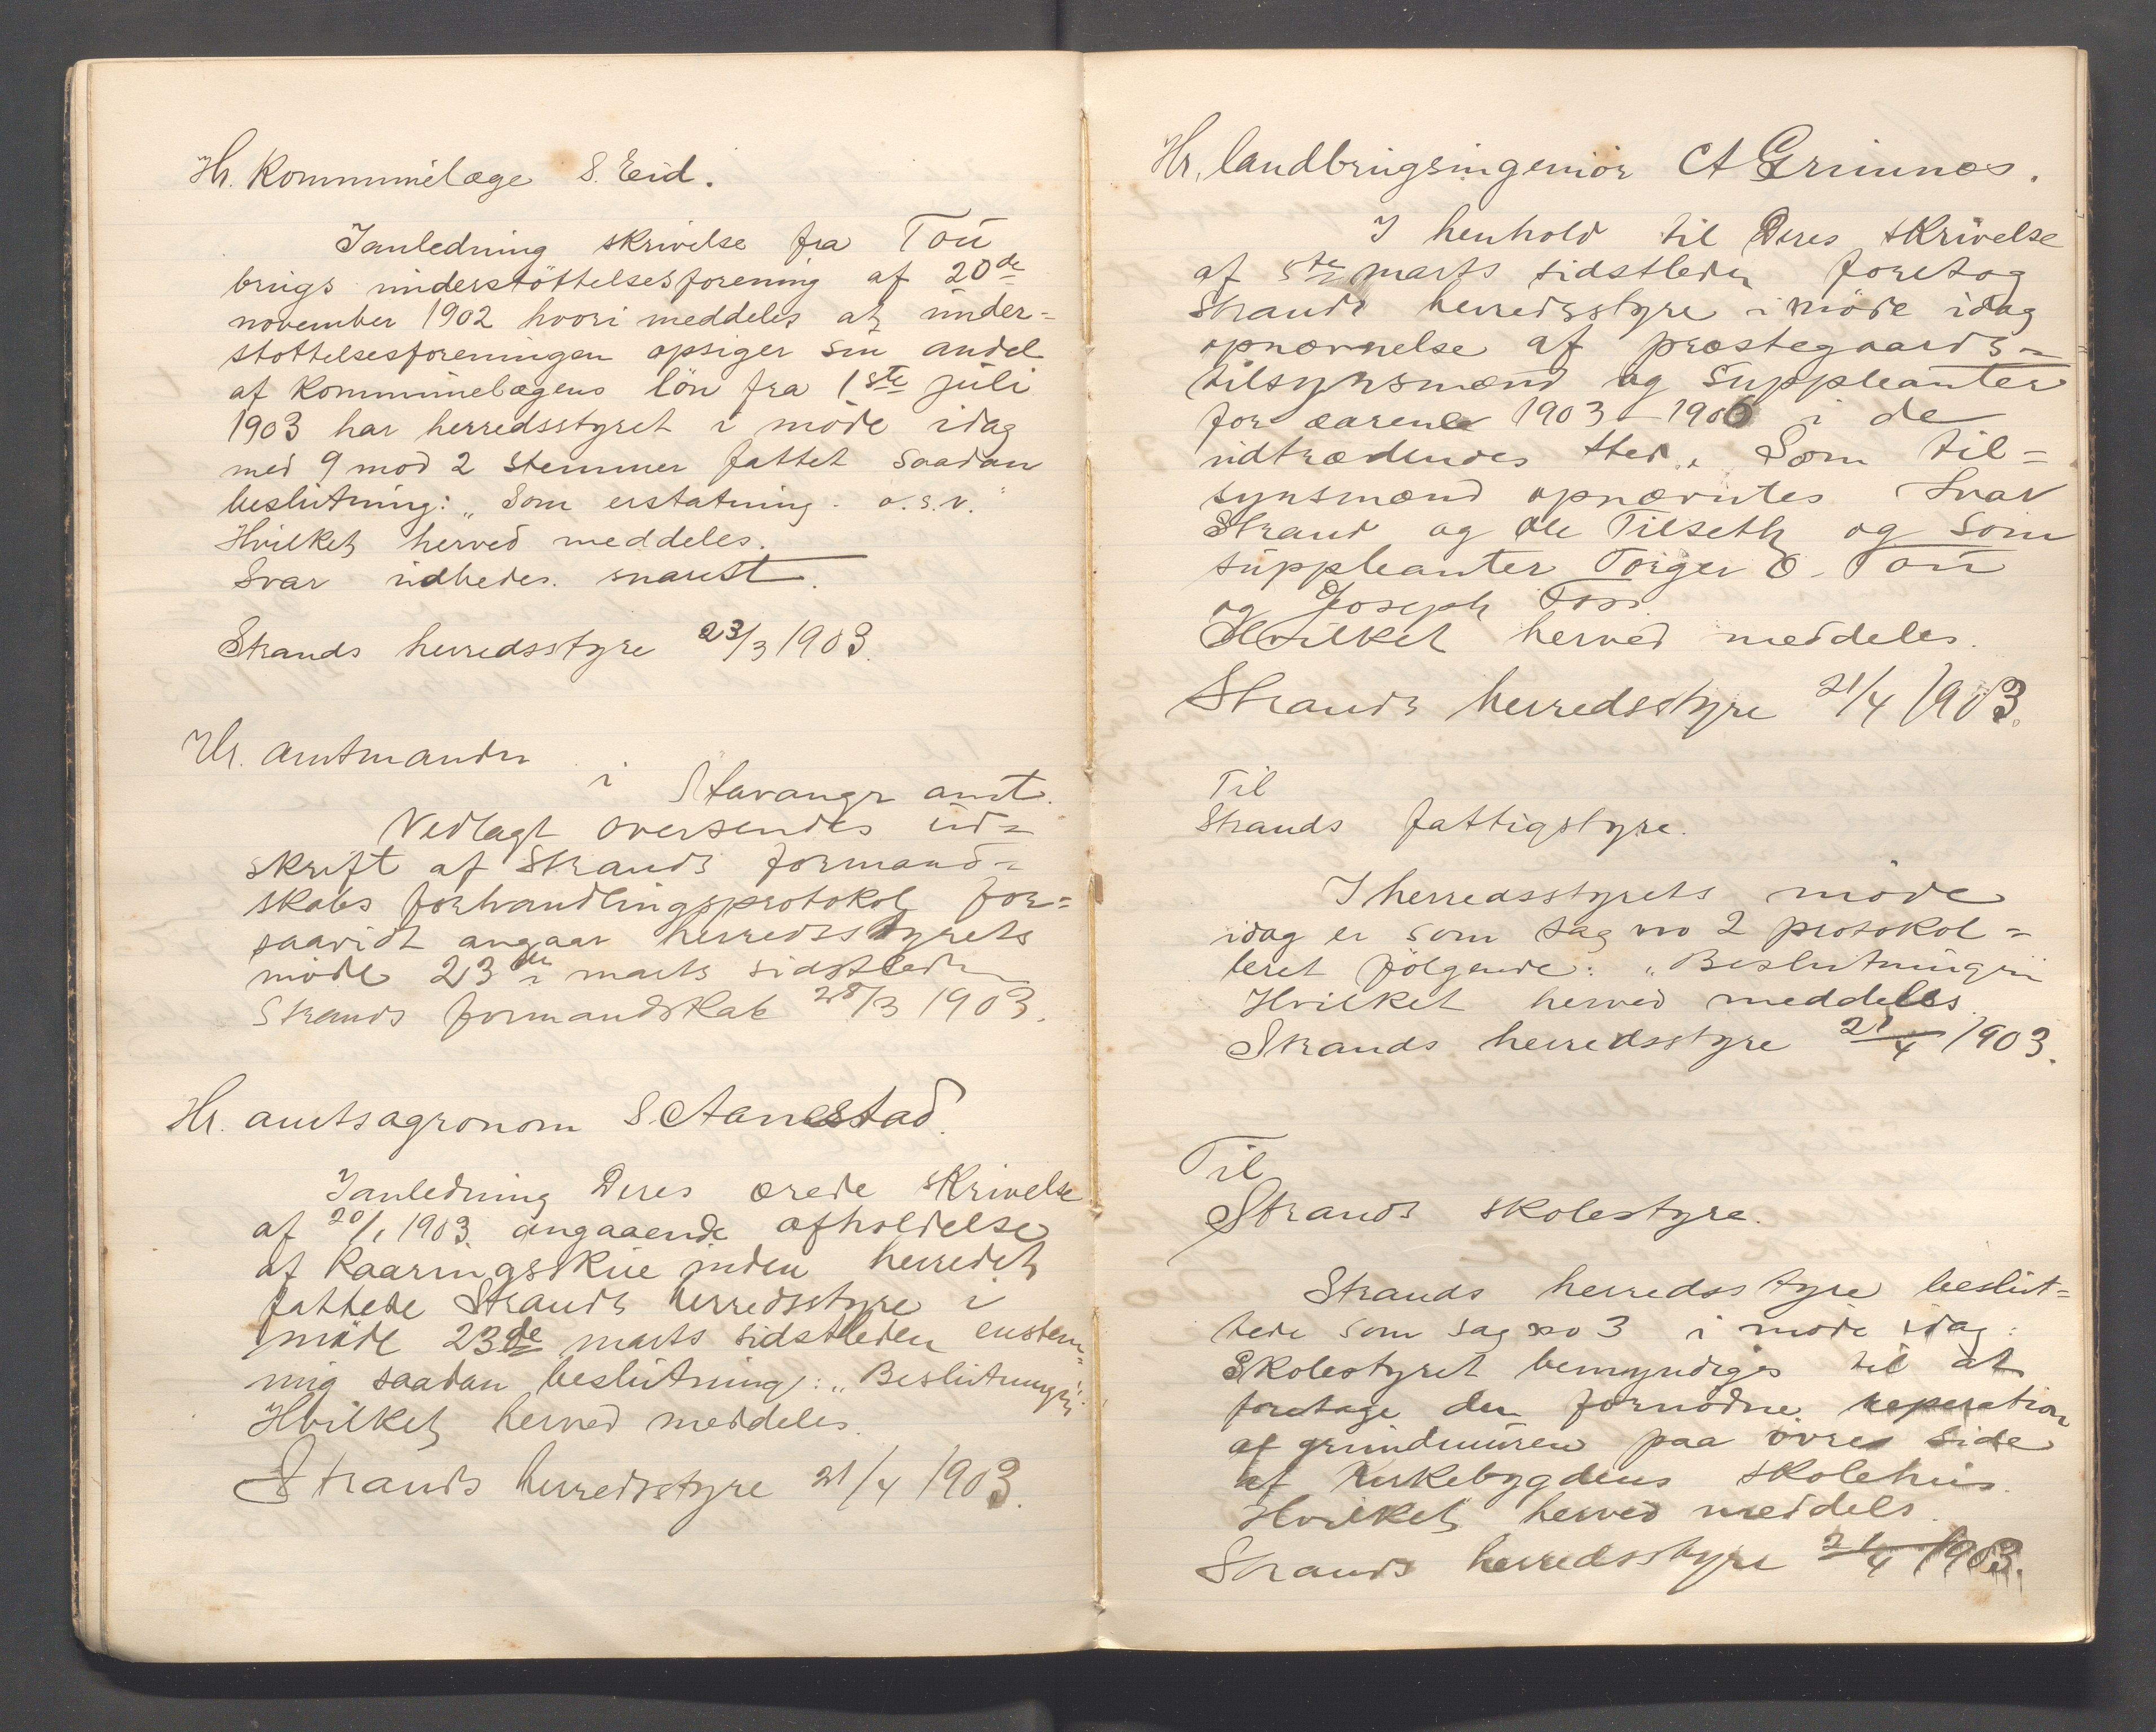 Hr. Kommunelæge S. Eid.
Ianledning skrivelse fra Tou
brugs understöttelsesforening af 20de
november 1902 hvori meddeles at under=
stottelsesforeningen opsiger sin andel
af Kommunelægens lön fra 1ste juli
1903 har herredsstyret i möde idag
med 9 mod 2 stemmer fattet saadan
beslutning: „Som erstatning. o.s.v."
Hvilket herved meddeles.
Svar udbedes. snarest.
Strands herredsstyre 23/3 1903.
Hr. amtmanden
i Stavanger amt.
Vedlagt oversendes ud=
skrift af Strands formand=
skabs forhandlingsprotokol for=
saavidt angaar herredsstyrets
möde 23de marts sidstleden
Strands formandskab 28/3 1903.
Hr. amtsagronom S. Aanestad.
Ianledning Deres ærede skrivelse
af 20/1 1903. angaaende afholdelse
af Kaaringsskue inden herredet
fattede Strands herredsstyre i
möde 23de marts sidstleden enstem=
mig saadan beslutning: „Beslutningen"
Hvilket herved meddeles.
Strands herredsstyre 21/4 1903.
Hr. landbrugsingeniör A Grimnæs.
I henhold til Deres skrivelse
af 5te marts sidstleden foretog
Strands herredsstyre i möde idag
opnævnelse af præstegaards=
tilsynsmænd og suppleanter
for aarene 1903-1906 i de
udtrædendes sted. Som til=
synsmænd opnævntes Ivar
Strand og Ole Tilseth og som
suppleanter Torger O. Tou
og Joseph Foss.
Hvilket herved meddeles.
Strands herredsstyre 21/4 1903.
Til
Strands fattigstyre.
I herredsstyrets möde
idag er som sag no 2 protokol=
leret fölgende: „Beslutningen"
Hvilket herved meddeles
Strands herredsstyre 21/4 1903.
Til
Strands skolestyre.
Strands herredsstyre beslut=
tede som sag no 3 i möde idag:
Skolestyret bemyndiges til at
foretage den fornödne reperation
af grundmuren paa övre side
af Kirkebygdens skolehus.
Hvilket herved meddels.
Strands herredsstyre 21/4 1903.